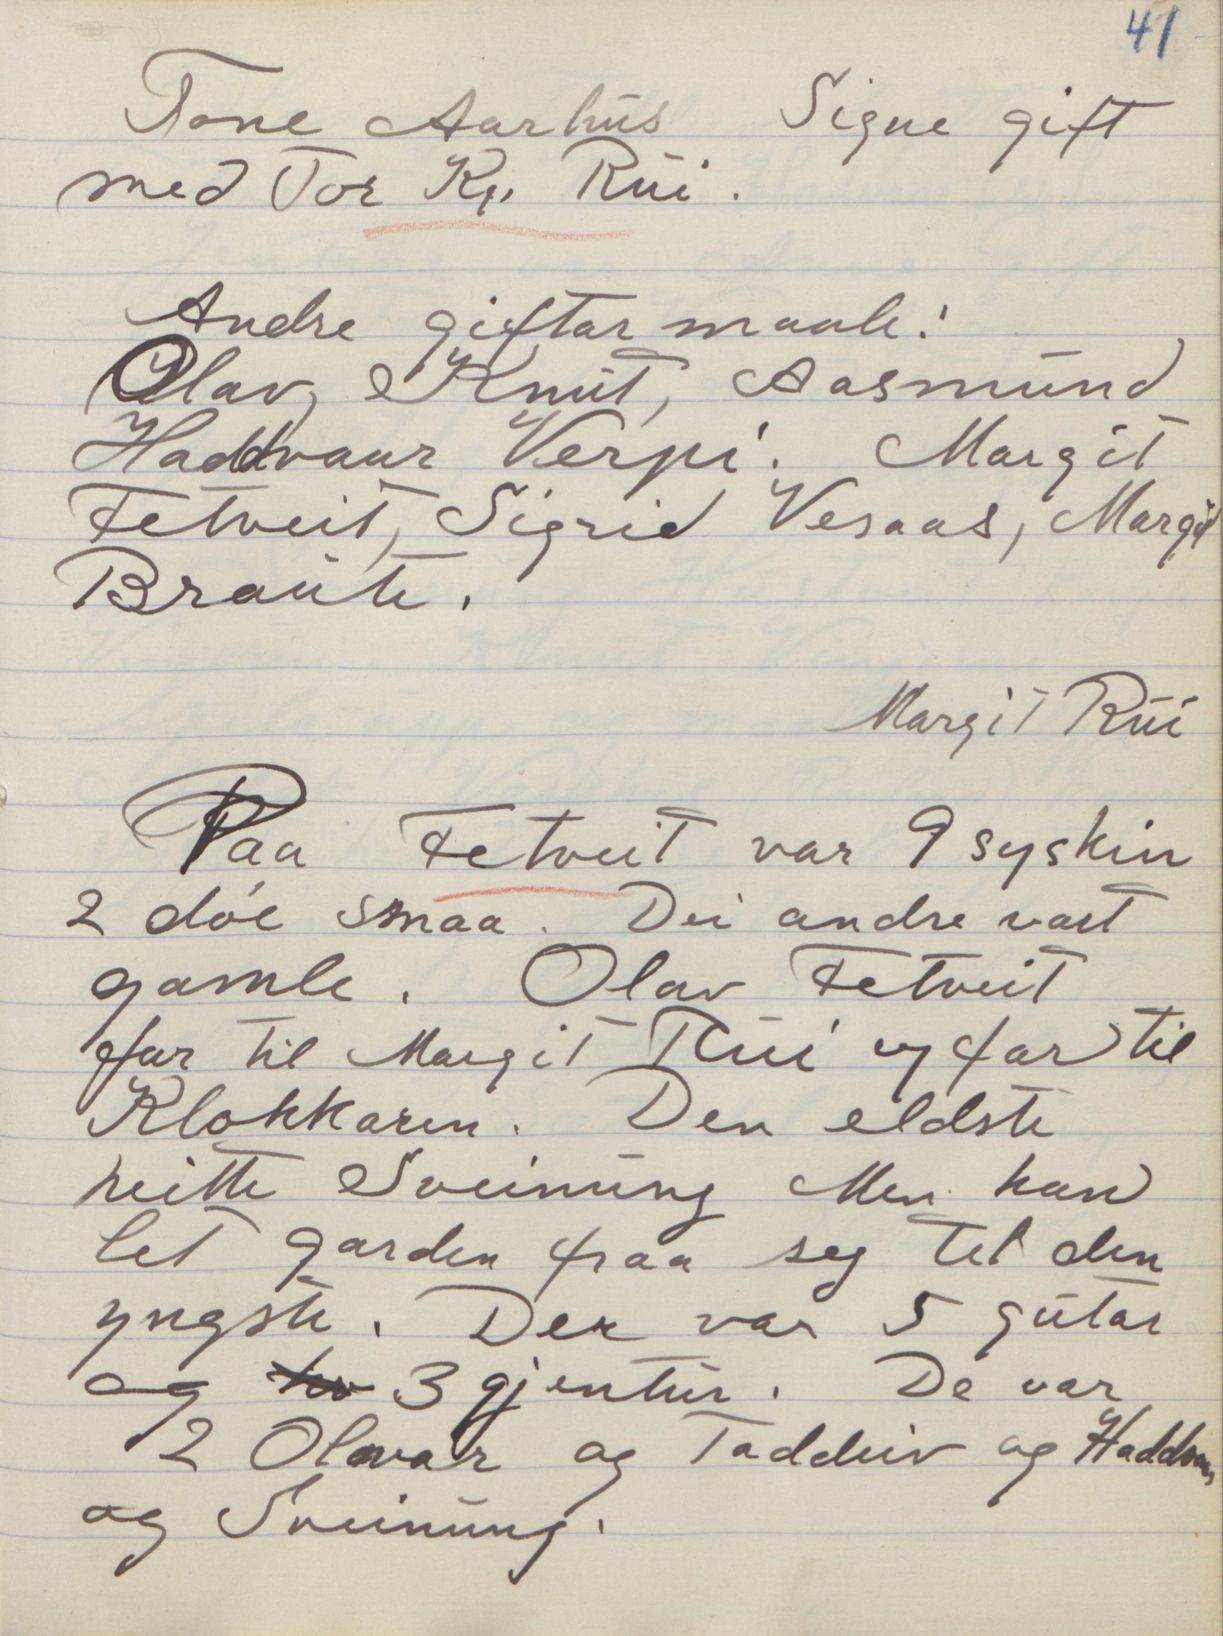 41
Tone Aarhus Signe gift
med Tor Kr. Rui.
Andre giftar maale:
Olav, Knut, Aasmund
Haddvaar Verpi. Margit
Fetveit, Sigrid Vesaas, Margit
Braute.
Margit Rui
Paa Fetveit var 9 syskin
2 dóe smaa. Dei andre vart
gamle. Olav Fetveit
far til Margit Rui og far til
Klokkaren. Den eldste
heitte Sveinung Men han
let garden fraa seg til den
yngste. Der var 5 gutar
og 3 gjentur. De var
2 Olavar og Taddeiv og Haddvaar
og Sveinung.